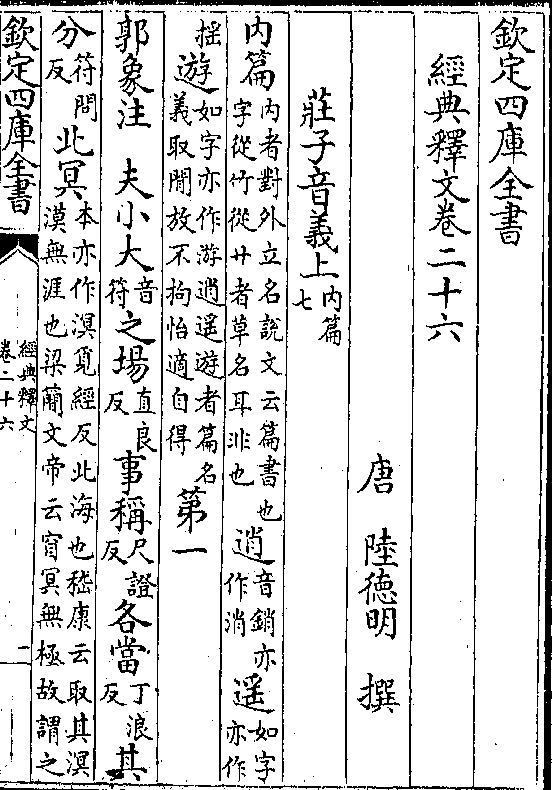 欽定四庫全書
經典釋文卷二十六
唐 陸德明 撰
莊子音義上內篇七
內篇內者對外立名說文云篇書也字從竹從艹者草名耳非也逍音銷亦作消遥如字亦作
摇遊如字亦作游逍遥遊者篇名義取閒放不拘怡適自得第一
郭象注 夫小大音符之場直良反事稱尺證反各當丁浪反其
分符問反北冥本亦作溟覓經反北海也嵇康云取其溟漠無涯也梁簡文帝云窅冥無極故謂之
欽定四庫全書
經典釋文
卷二十六
一